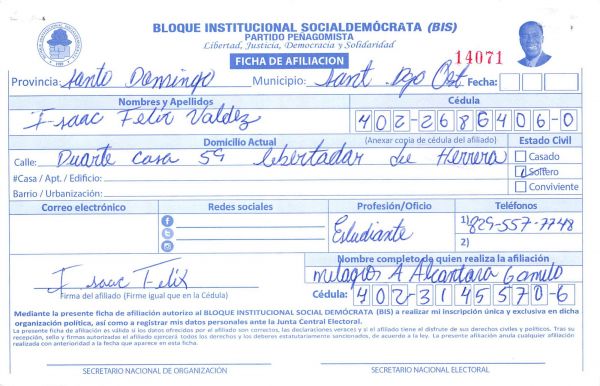 BLOQUE INSTITUCIONAL SOCIALDEMÓCRATA (BIS)
PARTIDO PEÑAGOMISTA
Libertad, Justicia, Democracia y Solidaridad
FICHA DE AFILIACION
14071
Provincia: Santo Domingo Municipio: Sant. Dgo Oest. Fecha:
Nombres y Apellidos Cédula
Isaac Felix Valdez 402-2686406-0
Domicilio Actual (Anexar copia de cédula del afiliado) Estado Civil
Calle: Duarte casa 59 libertadar de Herrera Casado
#Casa / Apt. / Edificio: Soltero
Barrio / Urbanización: Conviviente
Correo electrónico Redes sociales Profesión/Oficio Teléfonos
Estudiante 1) 829-557-7748
2)
Nombre completo de quien realiza la afiliación
Isaac Felix milagros A Alcantara
Firma del afiliado (Firme igual que en la Cédula) Cédula: 402-3145570-6
Mediante la presente ficha de afiliación autorizo al BLOQUE INSTITUCIONAL SOCIAL DEMÓCRATA (BIS) a realizar mi inscripción única y exclusiva en dicha
organización política, así como a registrar mis datos personales ante la Junta Central Electoral.
La presente ficha de afiliación es válida si los datos ofrecidos por el afiliado son correctos, las declaraciones veraces y si el afiliado tiene el disfrute de sus derechos civiles y políticos. Tras su
recepción, sello y firmas autorizadas el afiliado ejercerá todos los derechos y los deberes estatutariamente sancionados, de acuerdo a la ley. La presente afiliación anula cualquier afiliación
realizada con anterioridad a la fecha que aparece en esta ficha.
SECRETARIO NACIONAL DE ORGANIZACIÓN SECRETARIO NACIONAL ELECTORAL